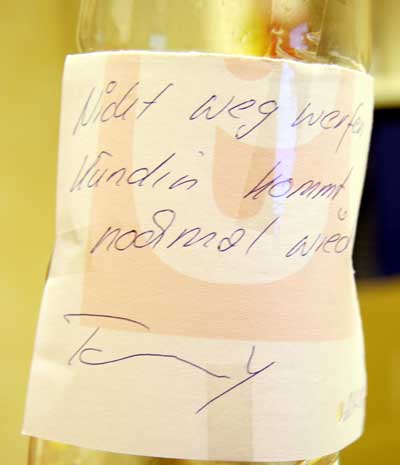 Nicht weg werfen
Kundin kommt
nochmal wied
Tommy